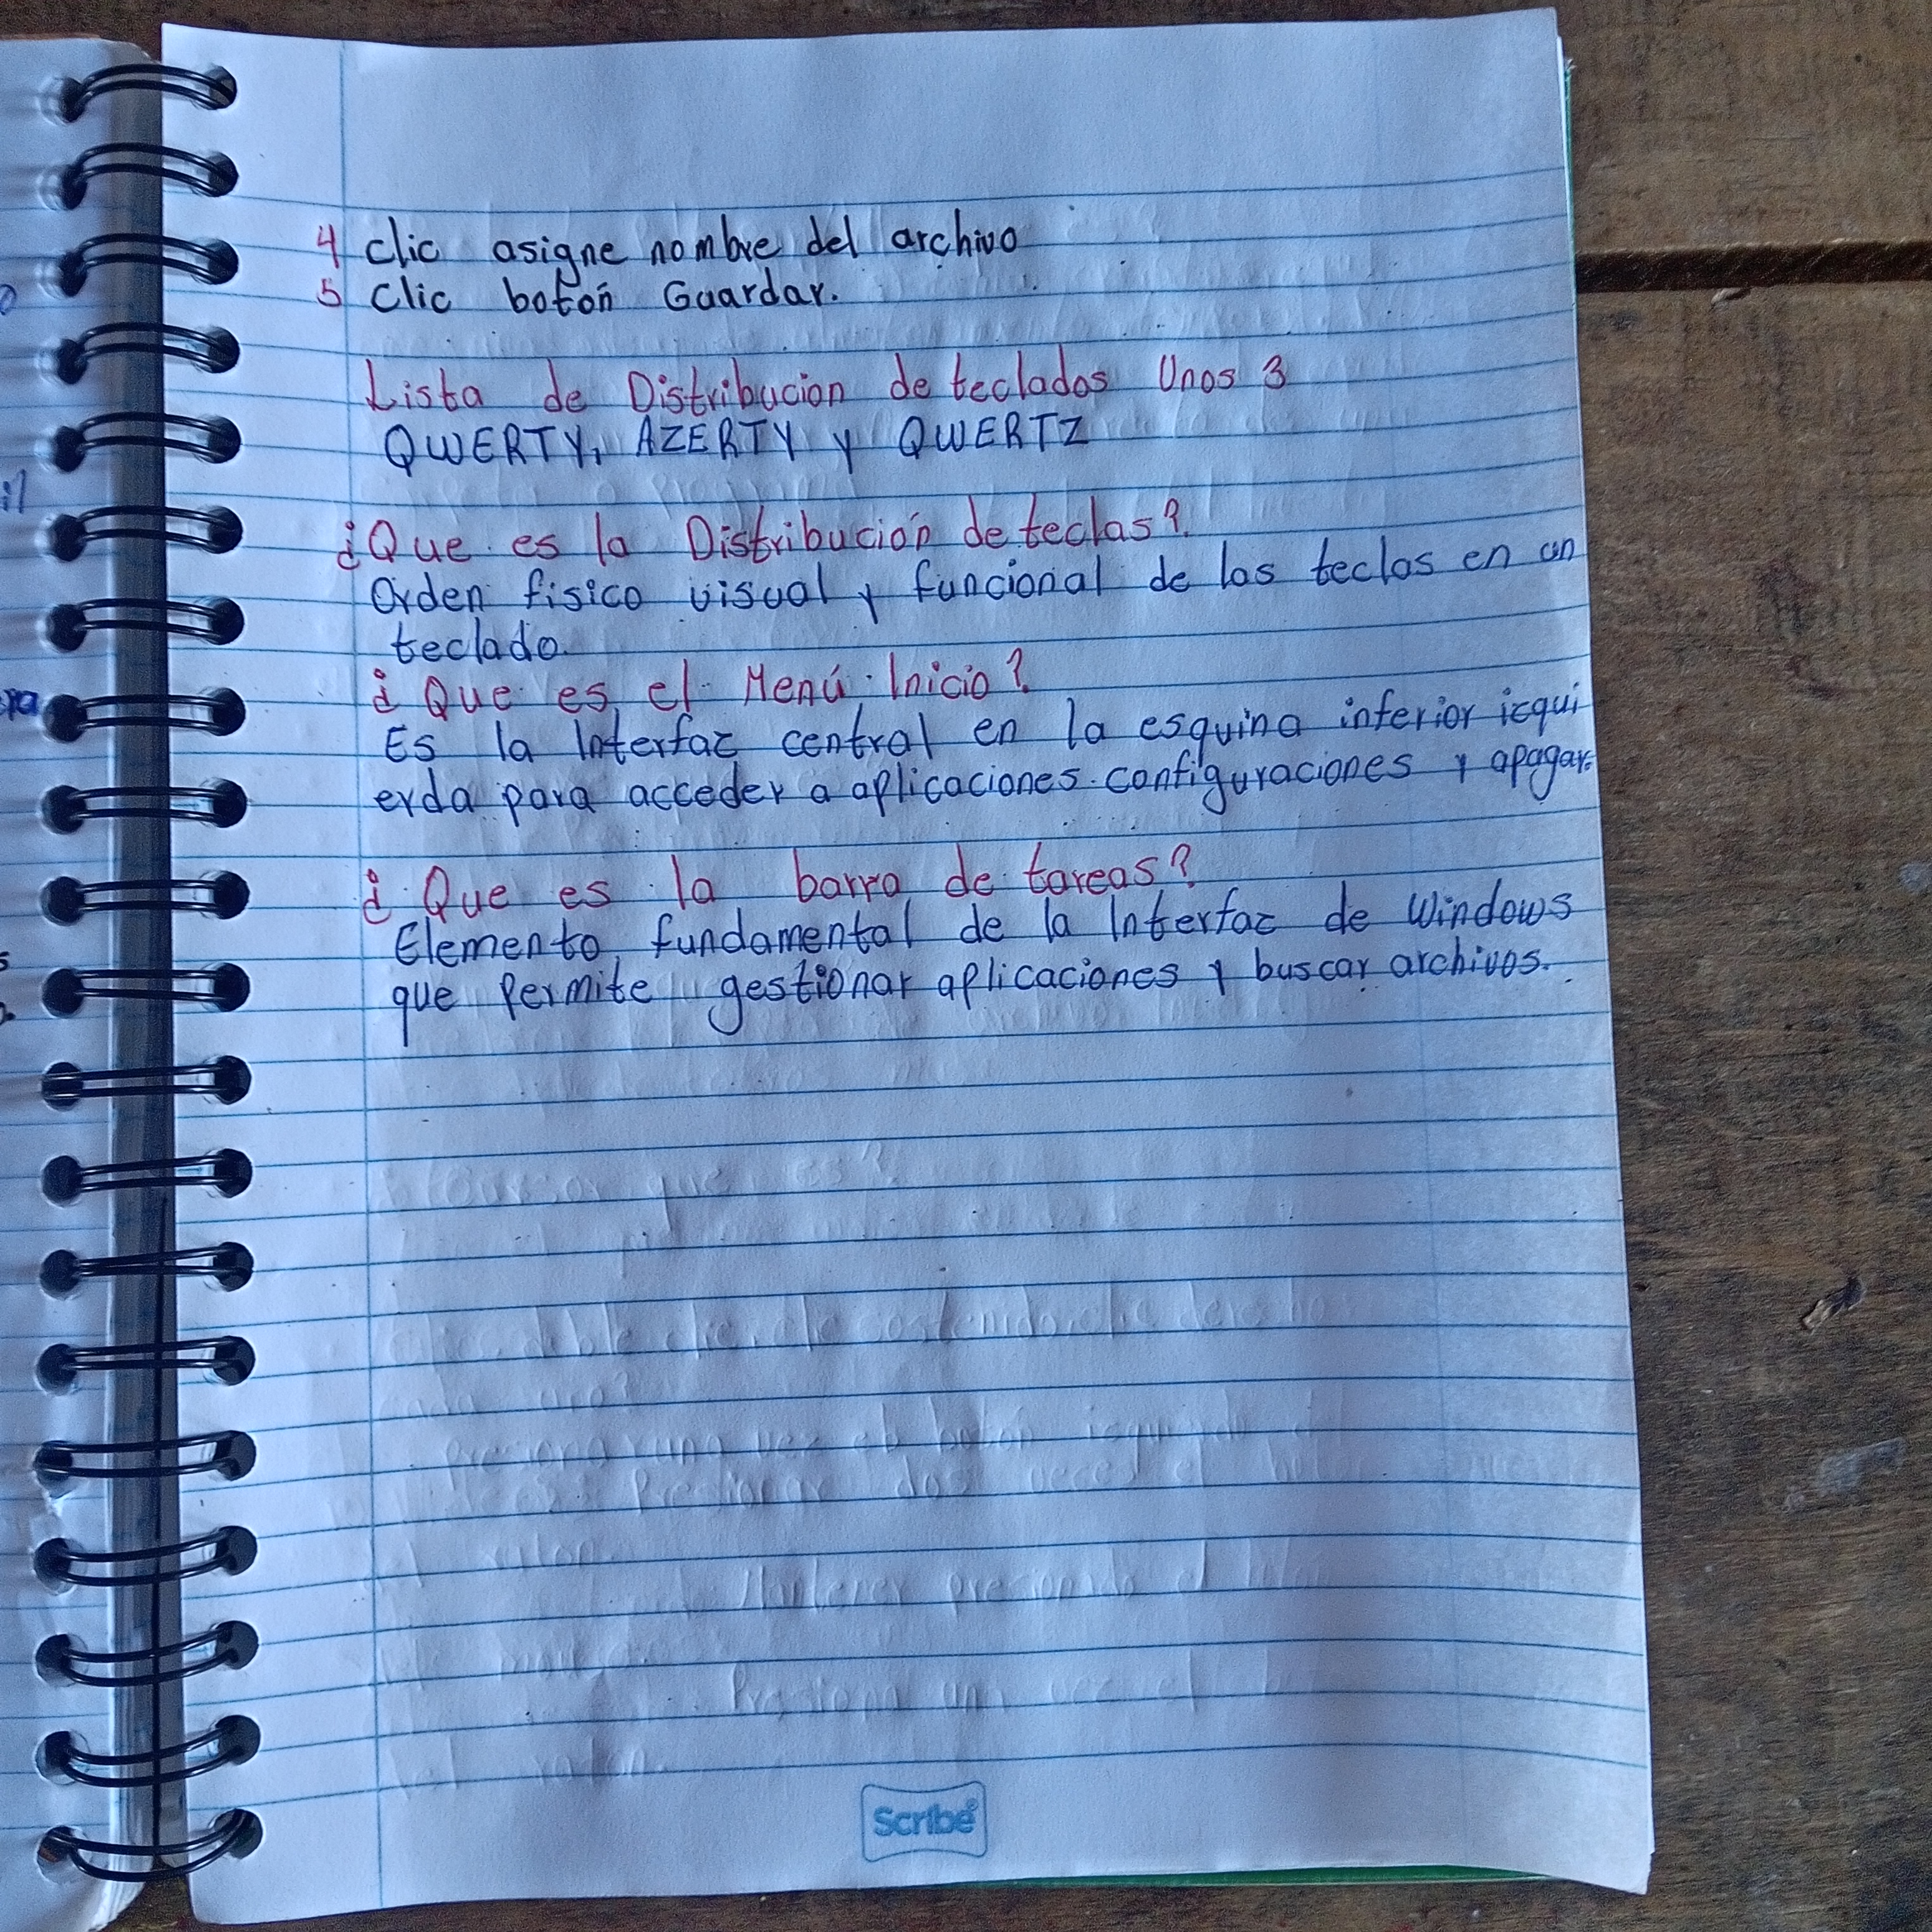 4 Clic asigne nombre del archivo
5 Clic botón Guardar.
Lista de Distribucion de teclados Unos 3
QWERTY, AZERTY y QWERTZ
¿Que es la Distribución de teclas?
Orden fisico visual y funcional de las teclas en un
teclado.
¿Que es el Menú Inicio?
Es la Interfaz central en la esquina inferior izqui
erda para acceder a aplicaciones configuraciones y apagar.
¿Que es la barra de tareas?
Elemento fundamental de la Interfaz de Windows
que Permite gestionar aplicaciones y buscar archivos.
Scribe